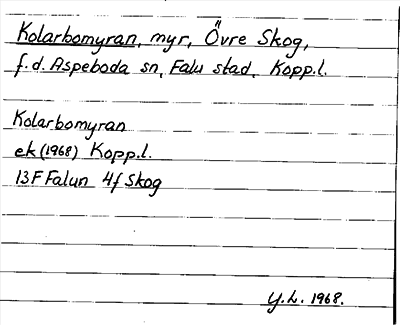 Kolarbomyran, myr, Övre Skog,
f.d. Aspeboda sn, Falu stad, Kopp.l.
Kolarbomyran
ek (1968) Kopp.l.
13F Falun 4f Skog
Y.L. 1968.